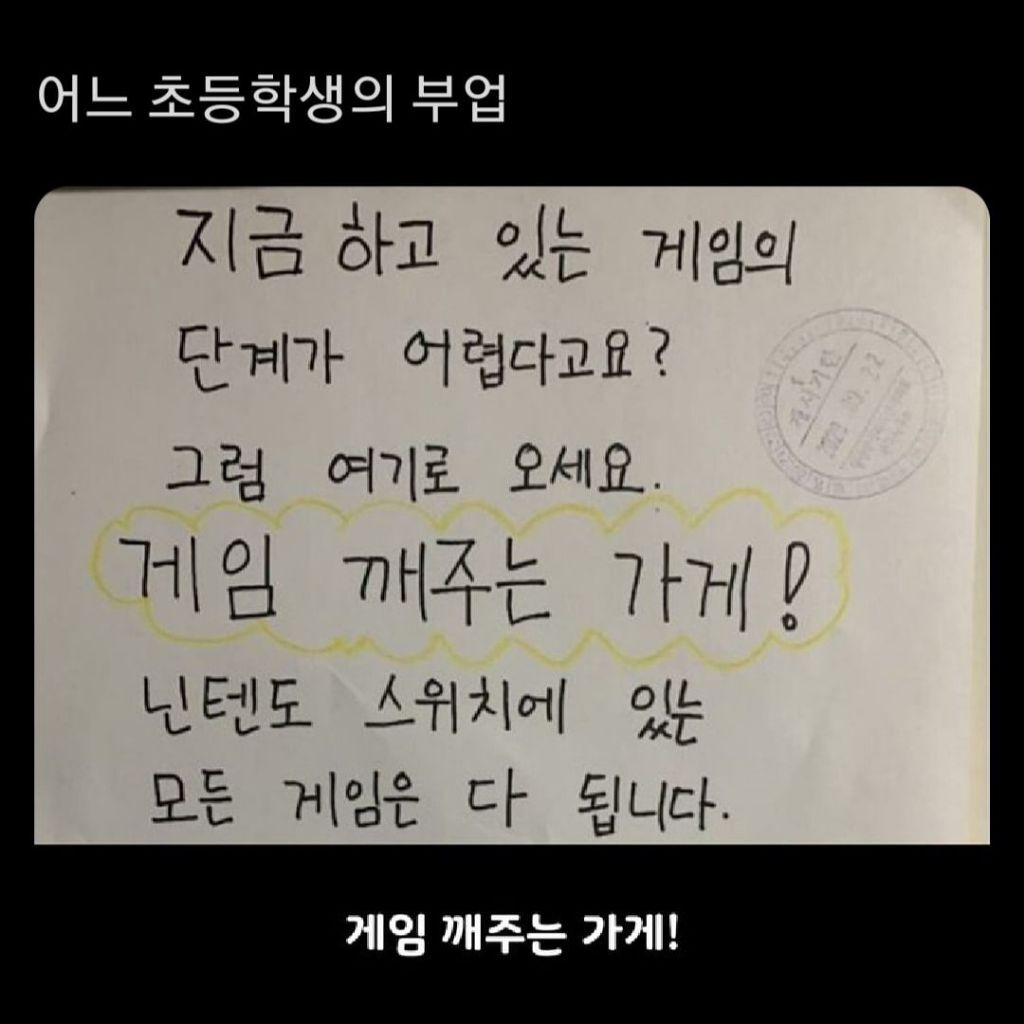 어느 초등학생의 부업
지금 하고 있는 게임의
단계가 어렵다고요?
그럼 여기로 오세요.
게임 깨주는 가게!
닌텐도 스위치에 있는
모든 게임은 다 됩니다.
게시기한
게임 깨주는 가게!